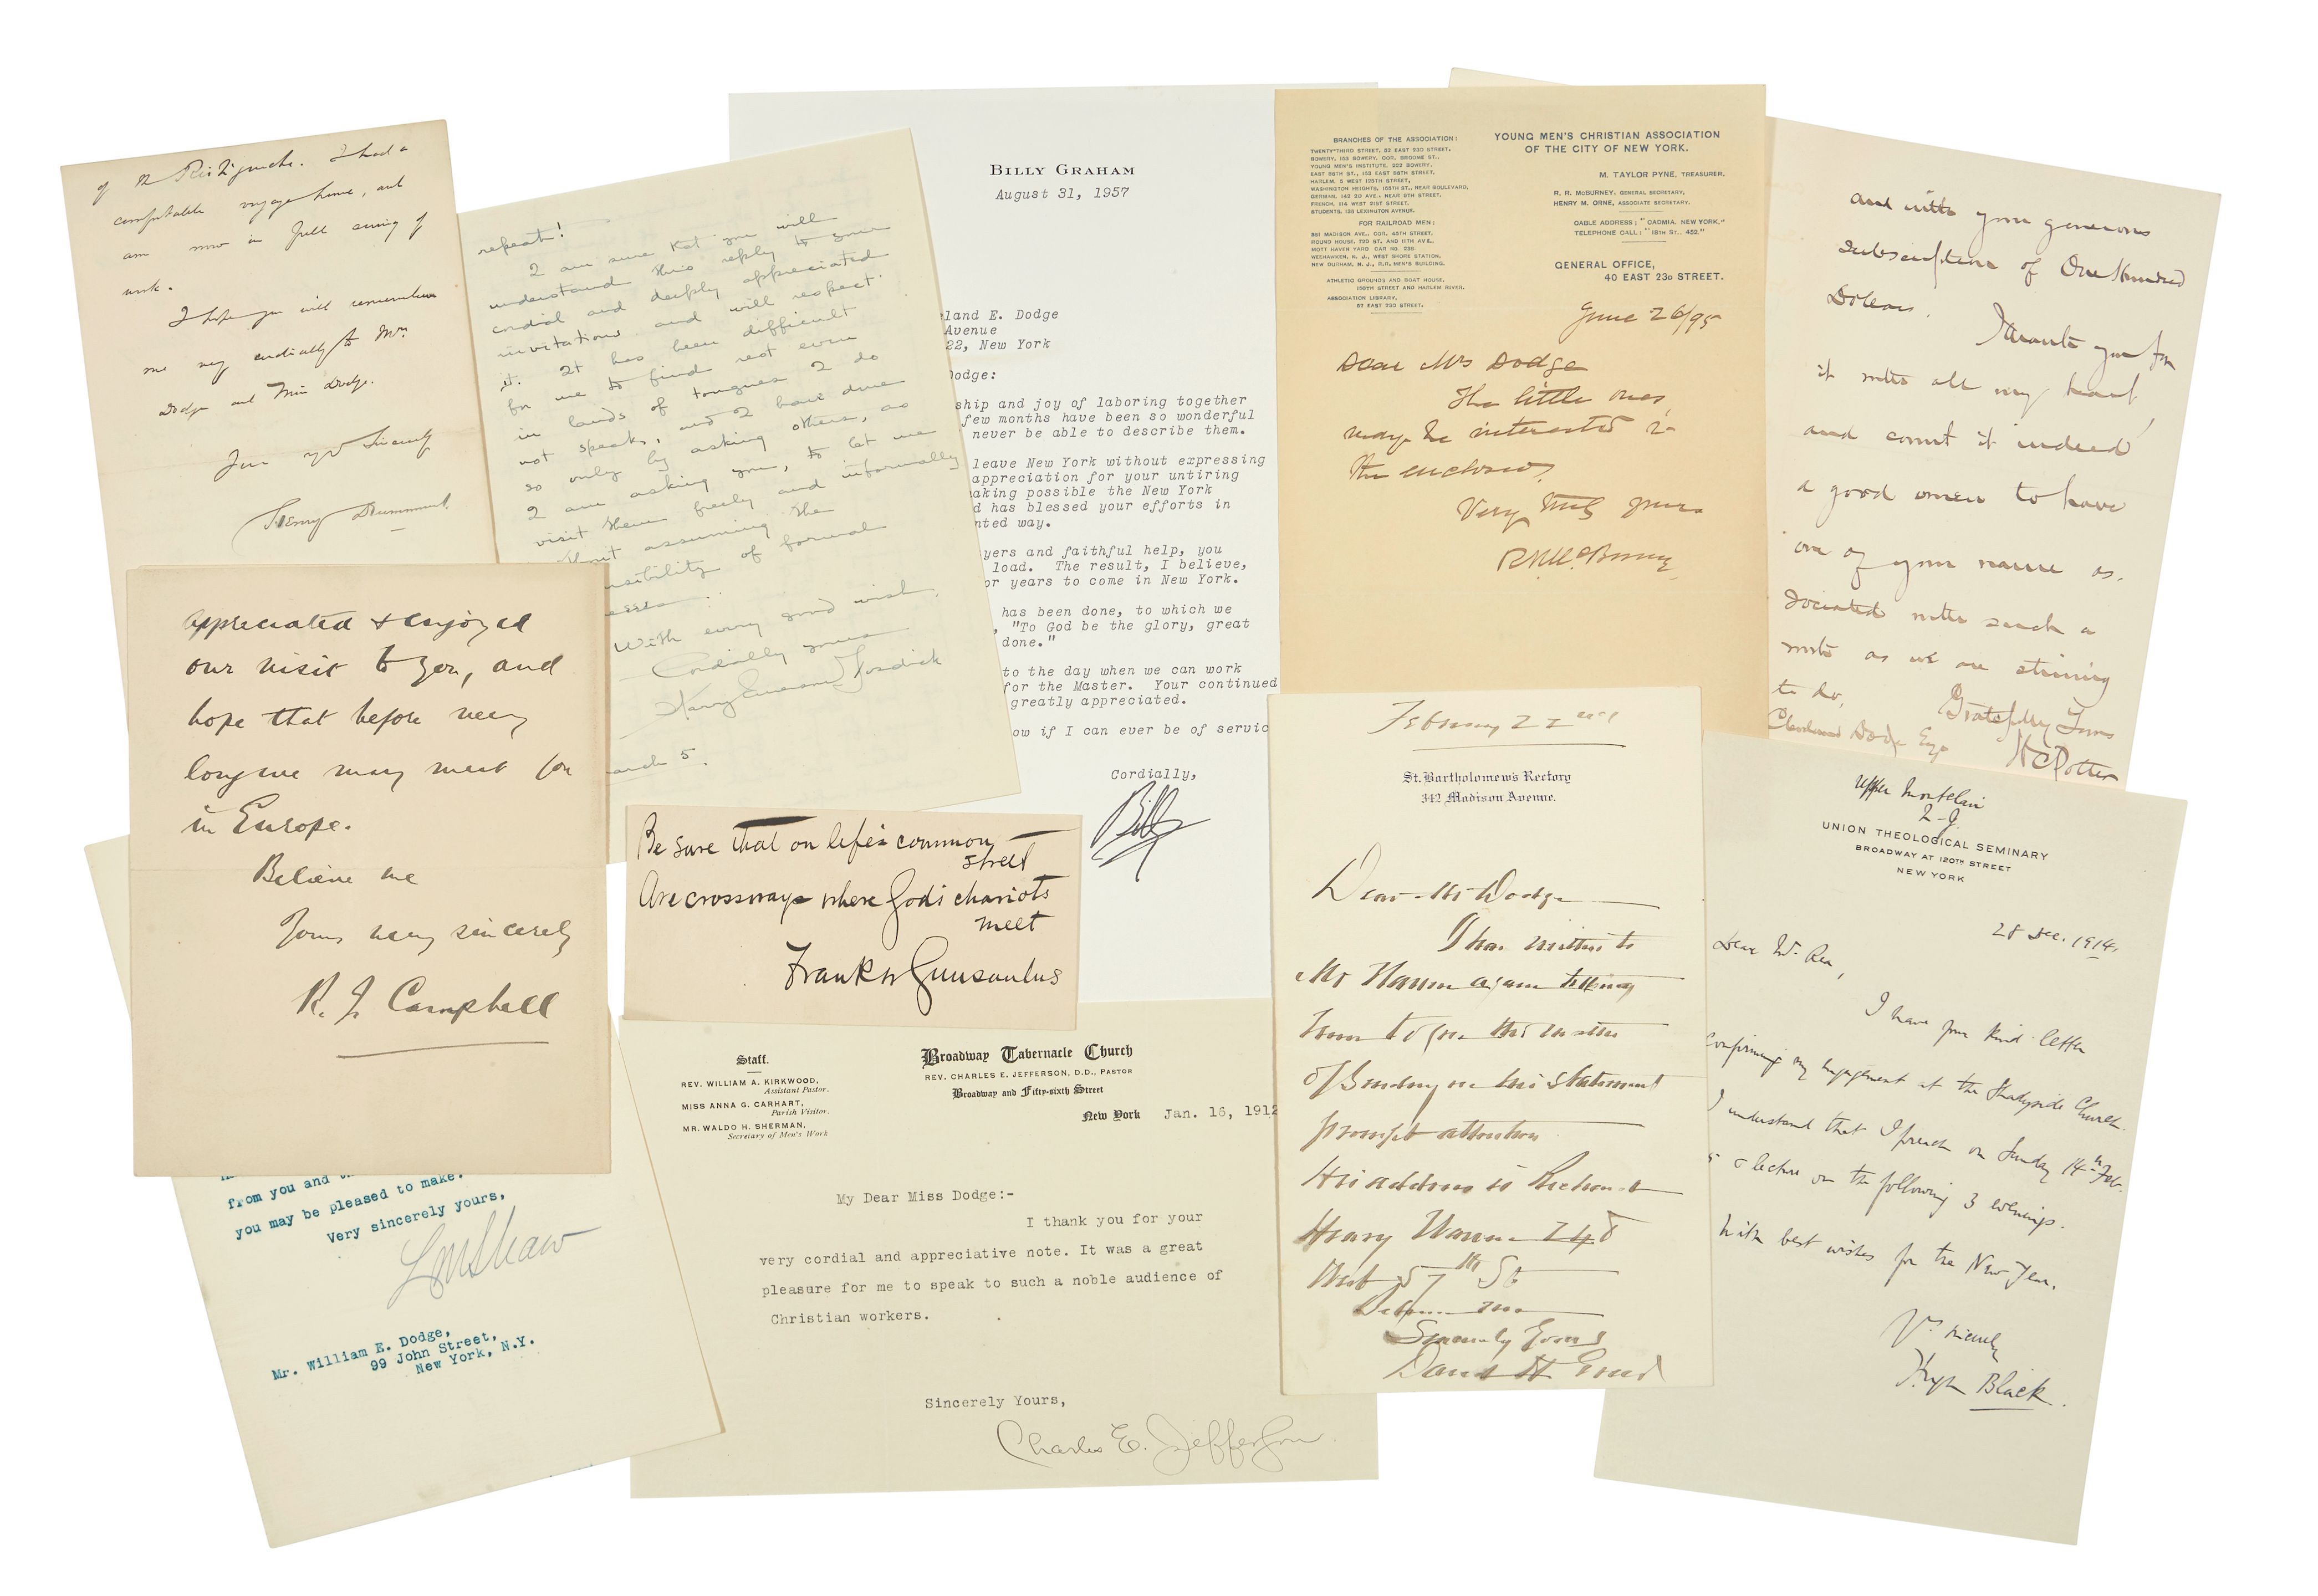 of the Ristigouche. I had a
comfortable voyage home, and
am now in full swing of
work.
I hope you will remember
me very cordially to Mrs.
Dodge and Miss Dodge.
Yours very sincerely
Henry Drummond.
repeat!
I am sure that you will
understand this reply to your
cordial and deeply appreciated
invitation and will respect
it. It has been difficult
for me to find rest even
in lands of tongues I do
not speak, and I have done
so only by asking others, as
I am asking you, to let me
visit them freely and informally
without assuming the
of formal
With every good wish,
Cordially yours
Harry Emerson Fosdick
5.
BILLY GRAHAM
August 31, 1957
land E. Dodge
Avenue
22, New York
Dodge:
ship and joy of laboring together
few months have been so wonderful
never be able to describe them.
leave New York without expressing
appreciation for your untiring
aking possible the New York
d has blessed your efforts in
nted way.
yers and faithful help, you
load. The result, I believe,
or years to come in New York.
has been done, to which we
, "To God be the glory, great
done."
to the day when we can work
for the Master. Your continued
greatly appreciated.
ow if I can ever be of servic
Cordially,
Billy
BRANCHES OF THE ASSOCIATION:
TWENTY-THIRD STREET, 52 EAST 23D STREET.
BOWERY, 153 BOWERY, COR. BROOME ST.,
YOUNG MEN'S INSTITUTE, 222 BOWERY.
EAST 86TH ST., 153 EAST 86TH STREET,
HARLEM, 5 WEST 125TH STREET,
WASHINGTON HEIGHTS, 155TH ST., NEAR BOULEVARD,
GERMAN, 142 2D AVE., NEAR 9TH STREET,
FRENCH, 114 WEST 21ST STREET,
STUDENTS, 136 LEXINGTON AVENUE.
FOR RAILROAD MEN:
361 MADISON AVE., COR. 45TH STREET,
ROUND HOUSE, 72D ST. AND 11TH AVE.,
MOTT HAVEN YARD CAR NO. 230
WEEHAWKEN, N. J., WEST SHORE STATION,
NEW DURHAM, N. J., R.R. MEN'S BUILDING.
ATHLETIC GROUNDS AND BOAT HOUSE,
150TH STREET AND HARLEM RIVER.
ASSOCIATION LIBRARY,
52 EAST 23D STREET.
YOUNG MEN'S CHRISTIAN ASSOCIATION
OF THE CITY OF NEW YORK.
M. TAYLOR PYNE, TREASURER.
R. R. McBURNEY, GENERAL SECRETARY,
HENRY M. ORNE, ASSOCIATE SECRETARY.
CABLE ADDRESS: "CADMIA, NEW YORK."
TELEPHONE CALL: "18TH ST., 452."
GENERAL OFFICE,
40 EAST 23D STREET.
June 26/95
Dear Mrs Dodge
The little ones
may be interested in
the enclosed.
Very truly yours
R R McBurney
and with your generous
subscription of One Hundred
Dollars.
I thank you for
it with all my heart,
and count it indeed
a good omen to have
one of your name as-
sociated with such a
work as we are striving
to do.
Gratefully Yours
Cleveland Dodge Esq
H C Potter
appreciated & enjoyed
our visit to you, and
hope that before very
long we may meet you
in Europe.
Believe me
Yours very sincerely
R. J. Campbell
Be sure that on life's common
street
Are crossways where God's chariots
meet
Frank W Gunsaulus
from you and
you may be pleased to make.
Very sincerely yours,
L M Shaw
Mr. William E. Dodge,
99 John Street,
New York, N.Y.
Staff.
REV. WILLIAM A. KIRKWOOD,
Assistant Pastor.
MISS ANNA G. CARHART,
Parish Visitor.
MR. WALDO H. SHERMAN,
Secretary of Men's Work
Broadway Tabernacle Church
REV. CHARLES E. JEFFERSON, D.D., PASTOR
Broadway and Fifty-sixth Street
New York Jan. 16, 1912
My Dear Miss Dodge:-
I thank you for your
very cordial and appreciative note. It was a great
pleasure for me to speak to such a noble audience of
Christian workers.
Sincerely Yours,
Charles E. Jefferson.
February 22nd
St. Bartholomew's Rectory
342 Madison Avenue.
Dear Mr Dodge
I have written to
Mr Hanna again telling
him to give the matter
of Sunday in his statement
prompt attention
His address is
Henry Hanna 248
West 57th St
Believe me
Sincerely Yours
David H Greer
Upper Montclair
N.J.
UNION THEOLOGICAL SEMINARY
BROADWAY AT 120TH STREET
NEW YORK
28 Dec. 1914.
Dear Mr. Rea,
I have your kind letter
confirming my engagement at the Shadyside Church.
I understand that I preach on Sunday 14th Feb.
& lecture on the following 3 evenings.
With best wishes for the New Year.
Yrs sincerely
Hugh Black.